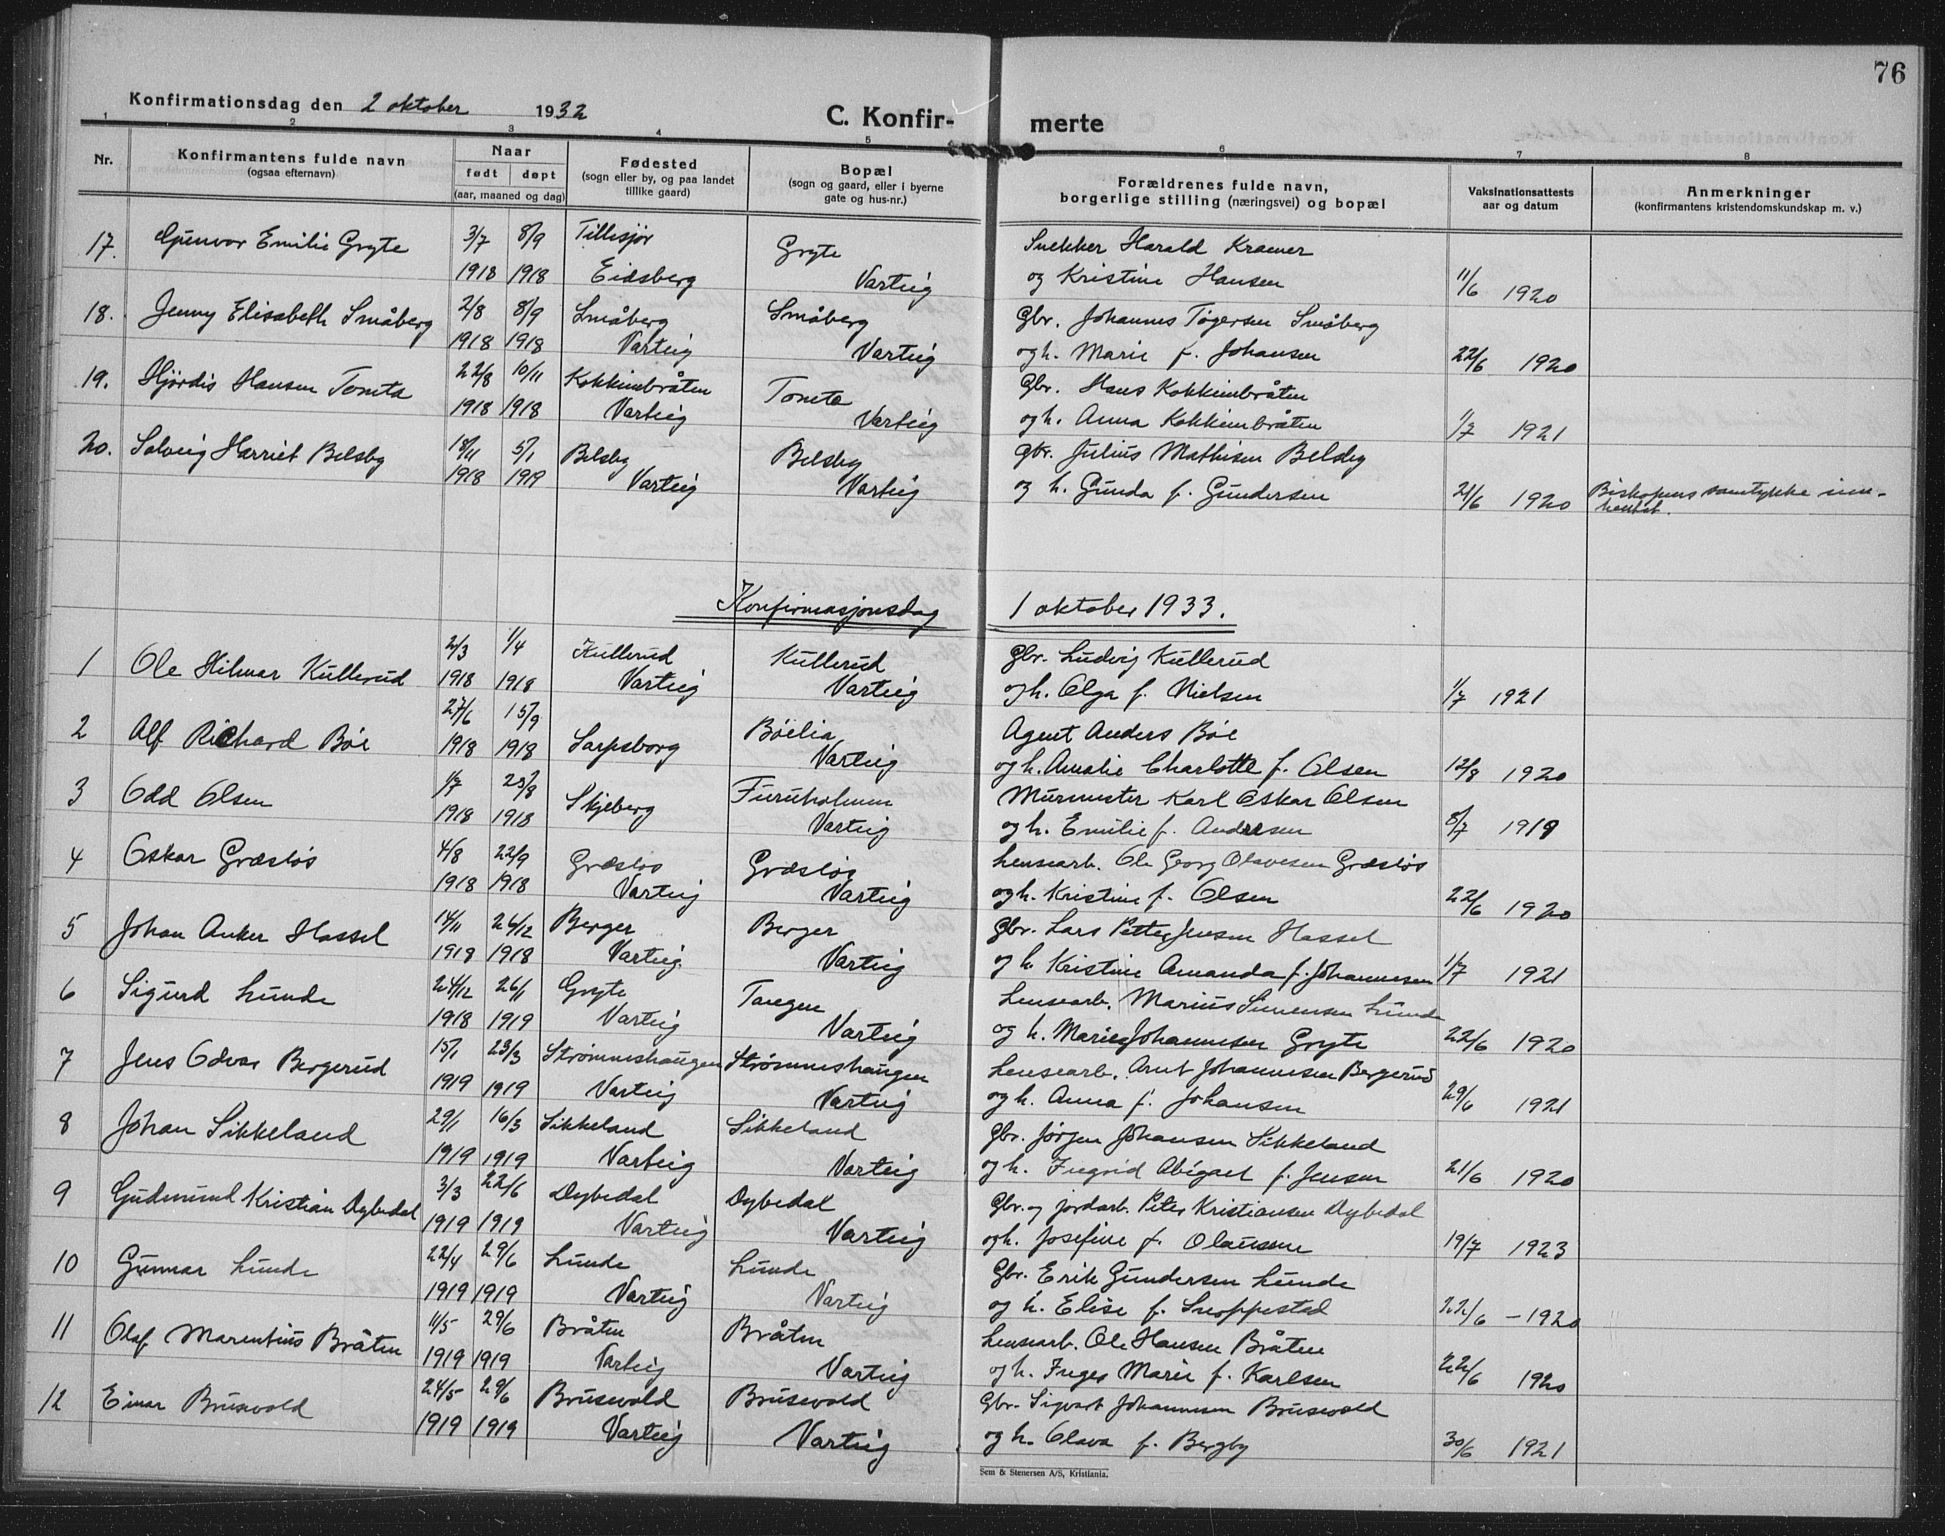 76
Konfirmationsdag den 2 oktober 1932
C. Konfir- merte
1 2 3 4 5 6 7 8
Nr. Konfirmantens fulde navn (ogsaa efternavn) Naar født døpt (aar, maaned og dag) Fødested (sogn eller by, og paa landet tillike gaard) Bopæl (sogn og gaard, eller i byerne gate og hus-nr.) Forældrenes fulde navn, borgerlige stilling (næringsvei) og bopæl Vaksinationsattests aar og datum Anmerkninger (konfirmantens kristendomskundskap m. v.)
17. Gunvor Emilie Gryte 3/7 8/9 Tillisjør Gryte Snekker Harald Kramer
1918 1918 Eidsberg Varteig og Kristine Hansen 11/6 1920
18. Jenny Elisabeth Småberg 2/8 8/9 Småberg Småberg Gbr. Johannes Tøgersen Småberg
1918 1918 Varteig Varteig og h. Marie f. Johansen 22/6 1920
19. Hjørdis Hansen Tomta 22/8 10/11 Kokkimbråten Tomta Gbr. Hans Kokkimbråten
1918 1918 Varteig Varteig og h. Anna Kokkimbråten 1/7 1921
20. Solveig Harriet Belsby 18/11 5/1 Belsby Belsby gbr. Julius Mathisen Belsby
1918 1919 Varteig Varteig og h. Gunda f. Gundersen 21/6 1920 Biskopens samtykke inn-
hentet.
Konfirmasjonsdag 1 oktober 1933.
1 Ole Hilmar Kullerud 2/3 1/4 Kullerud Kullerud Gbr. Ludvig Kullerud
1918 1918 Varteig Varteig og h. Olga f. Nielsen 1/7 1921
2 Alf Richard Bøe 27/6 15/9 Sarpsborg Bøelia Agent Anders Bøe
1918 1918 Varteig og h. Amalie Charlotte f. Olsen 12/8 1920
3 Odd Olsen 1/7 25/8 Skjeberg Furuholmen Murmester Karl Oskar Olsen
1918 1918 Varteig og h. Emilie f. Andersen 8/7 1919
4 Oskar Græsløs 4/8 22/9 Græsløs Græsløs Lensearb. Ole Georg Olavesen Græsløs
1918 1918 Varteig Varteig og h. Kristine f. Olsen 22/6 1920
5 Johan Anker Hassel 14/11 26/12 Berger Berger Gbr. Lars Petter Jensen Hassel
1918 1918 Varteig Varteig og h. Kristine Amanda f. Johannesen 1/7 1921
6 Sigurd Lunde 24/12 26/1 Gryte Tangen Lensearb. Marius Simensen Lunde
1918 1919 Varteig Varteig og h. Marie Johannesen Gryte 22/6 1920
7 Jens Odvar Bergerud 15/1 23/3 Strømneshaugen Strømneshaugen Lensearb. Arnt Johannesen Bergerud
1919 1919 Varteig Varteig og h. Anna f. Johansen 29/6 1921
8 Johan Sikkeland 29/1 16/3 Sikkeland Sikkeland Gbr. Jørgen Johansen Sikkeland
1919 1919 Varteig Varteig og h. Ingrid Abigael f. Jensen 21/6 1920
9 Gudmund Kristian Dybedal 3/3 22/6 Dybedal Dybedal Gbr. og jordarb. Peter Kristiansen Dybedal
1919 1919 Varteig Varteig og h. Josefine f. Olausen 19/7 1923
10 Gunnar Lunde 22/4 29/6 Lunde Lunde Gbr. Erik Gundersen Lunde
1919 1919 Varteig Varteig og h. Elise f. Snoppestad 22/6 - 1920
11 Olaf Marentius Bråten 11/5 29/6 Bråten Bråten Lensearb. Ole Hansen Bråten
1919 1919 Varteig Varteig og h. Inger Marie f. Karlsen 22/6 1920
12 Einar Brusevold 24/5 29/6 Brusevold Brusevold Gbr. Sigvart Johannesen Brusevold
1919 1919 Varteig Varteig og h. Olava f. Bergby 30/6 1921
Sem & Stenersen A/S, Kristiania.